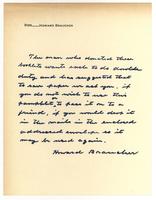 HOWARD BRAUCHER
The man who donated these
booklets wants each to do double
duty and has suggested that
to save paper we ask you, if
you do not wish to use this
pamphlet, to pass it on to a
friend, if you would drop it
in the mails in the enclosed
addressed envelope so it
may be used again.
Howard Braucher